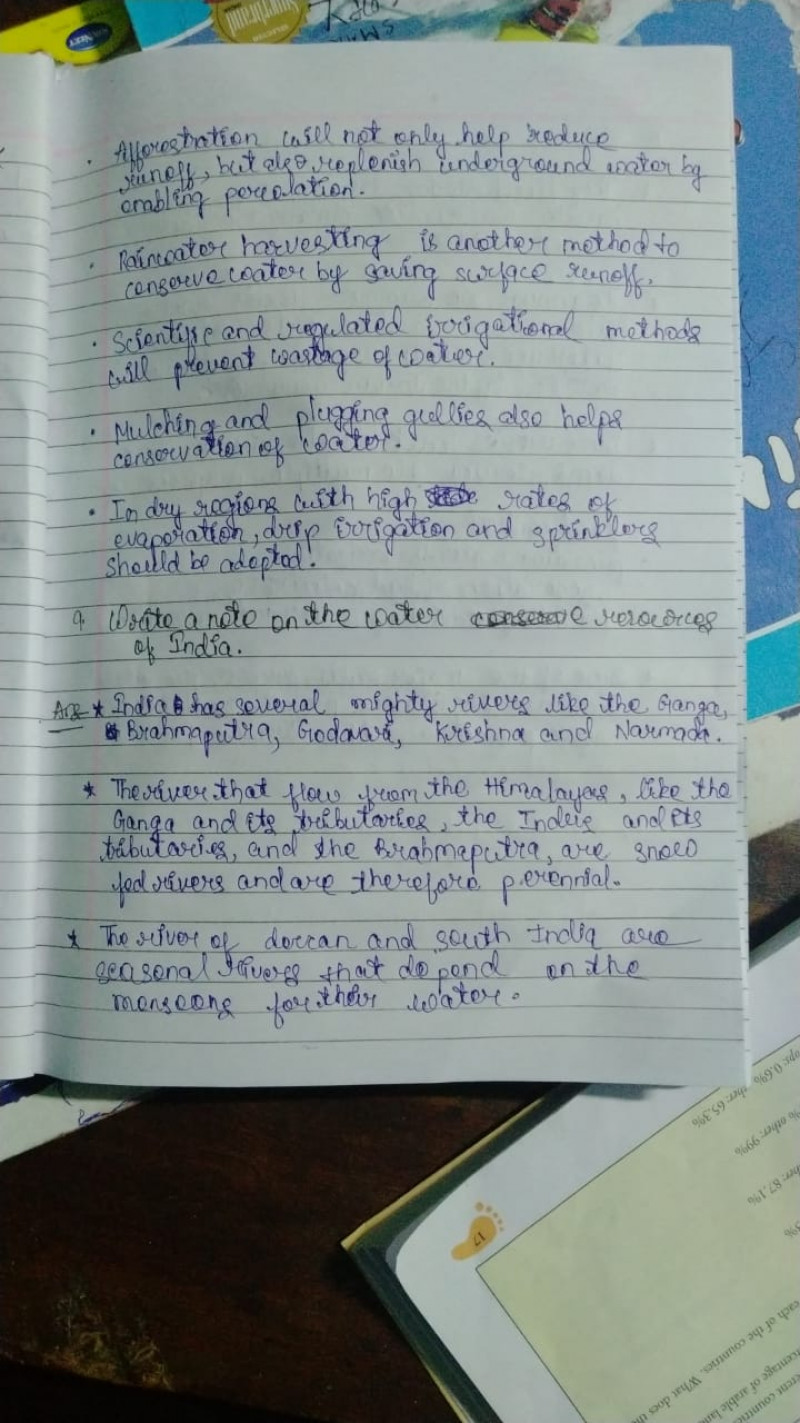 Afforestration will not only help reduce
runoff, but also replenish underground water by
enabling percolation.
• Rainwater harvesting is another method to
conserve water by saving surface runoff.
• Scientific and regulated irrigational methods
will prevent wastage of water.
• Mulching and plugging gullies also helps
conservation of water.
• In dry regions with high rates of
evaporation, drip irrigation and sprinklers
should be adopted.
9. Write a note on the water conserve resources
of India.
Ans * India has several mighty rivers like the Ganga,
Brahmaputra, Godavari, Krishna and Narmada.
* The river that flow from the Himalayas, like the
Ganga and its tributaries, the Indus and its
tributaries, and the Brahmaputra, are snow
fed rivers and are therefore perennial.
* The river of deccan and south India are
seasonal rivers that depend on the
monsoons for their water.
17
0.6%
65.3%
other: 99%
87.1%
each of the countries. What does the